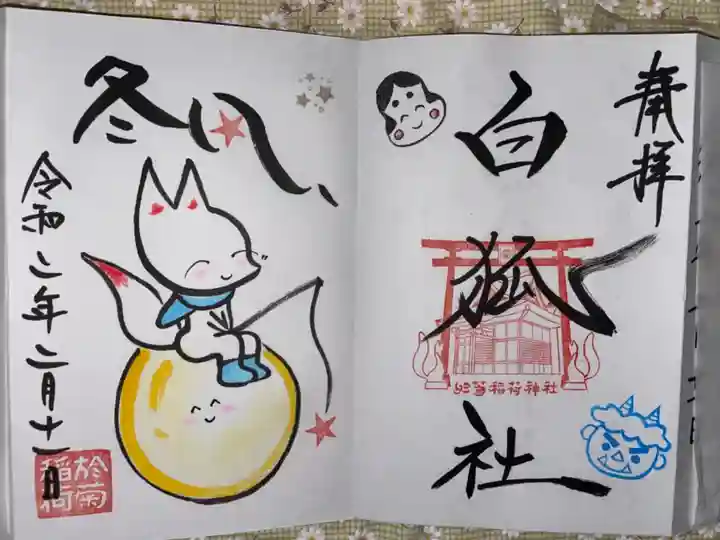 奉拝
白狐社
於菊稲荷神社
冬
令和二年二月十一日
於菊
稲荷